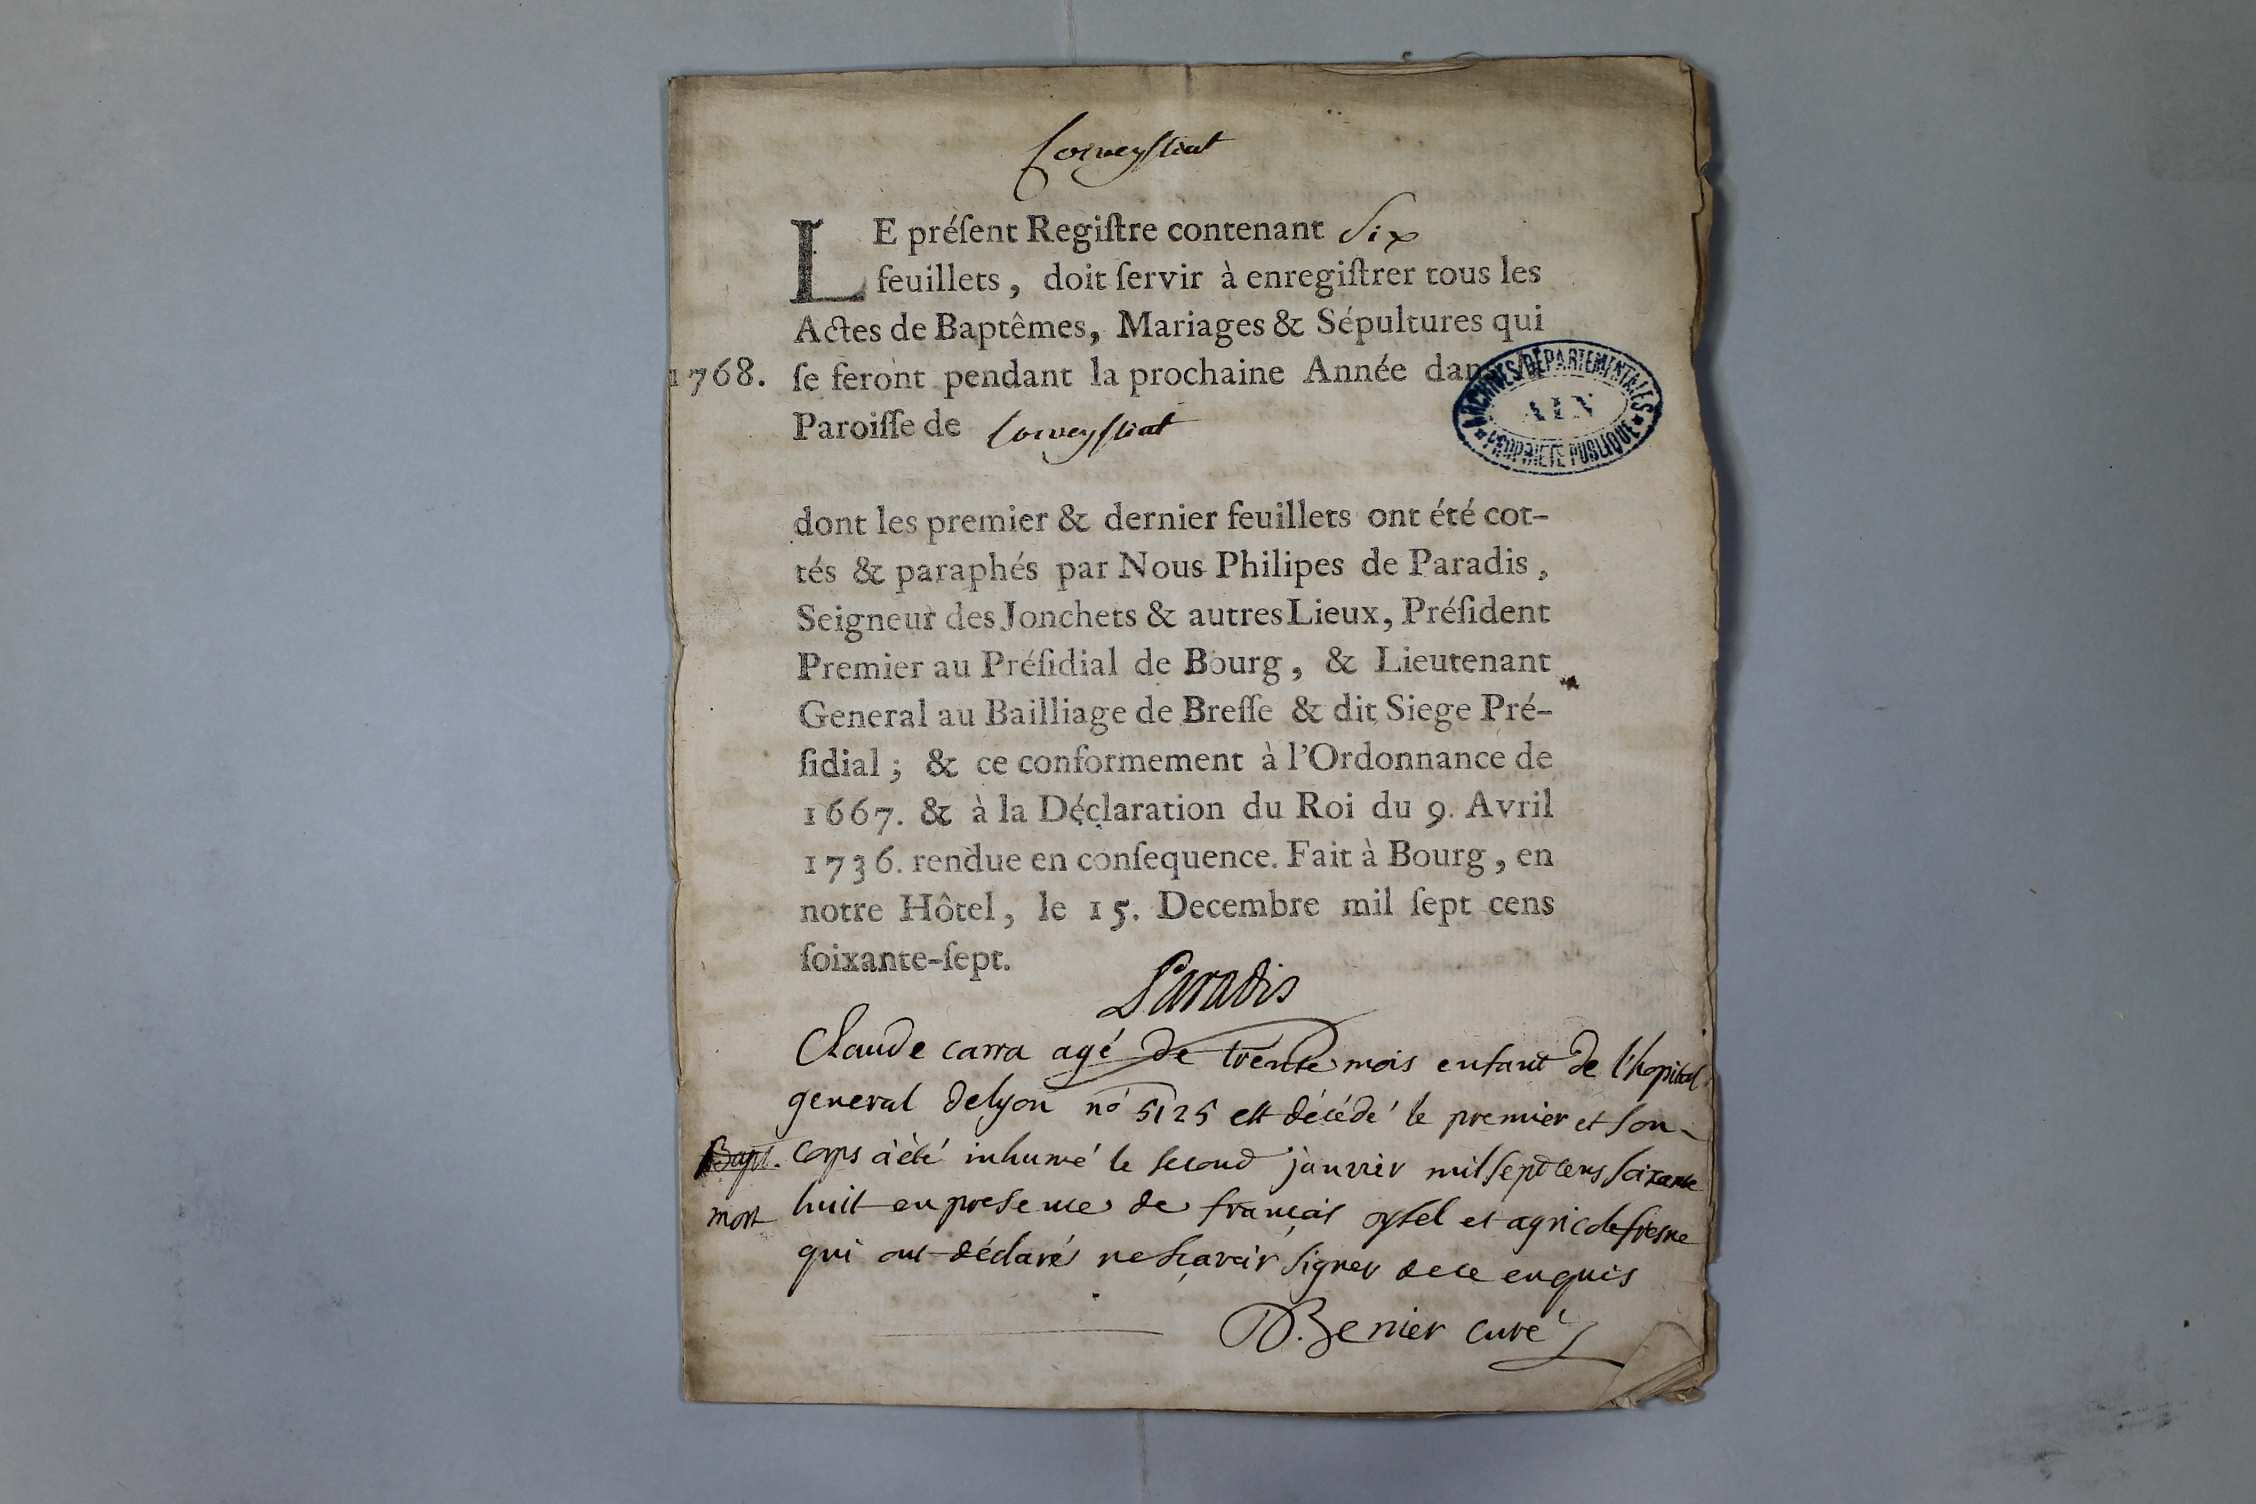 Corveyssiat
LE préſent Regiſtre contenant Six
feuillets, doit ſervir à enregiſtrer tous les
Actes de Baptêmes, Mariages & Sépultures qui
1768. ſe feront pendant la prochaine Année dans
Paroiſſe de Corveyssiat
ARCHIVES DÉPARTEMENTALES
AIN
PROPRIÉTÉ PUBLIQUE
dont les premier & dernier feuillets ont été cot-
tés & paraphés par Nous Philipes de Paradis,
Seigneur des Jonchets & autres Lieux, Préſident
Premier au Préſidial de Bourg, & Lieutenant
General au Bailliage de Breſſe & dit Siege Pré-
ſidial; & ce conformement à l'Ordonnance de
1667. & à la Déclaration du Roi du 9. Avril
1736. rendue en conſequence. Fait à Bourg, en
notre Hôtel, le 15. Decembre mil ſept cens
ſoixante-ſept.
Paradis
Claude carra agé de trente mois enfant de l'hopital
general de lyon no 5125 est décédé le premier et son
Bapt. corps a èté inhumé le second janvier mil sept cens soixante
mort huit en presence de francois oysel et agricole fresne
qui ont déclaré ne sçavoir signer de ce enquis
D. Benier curé